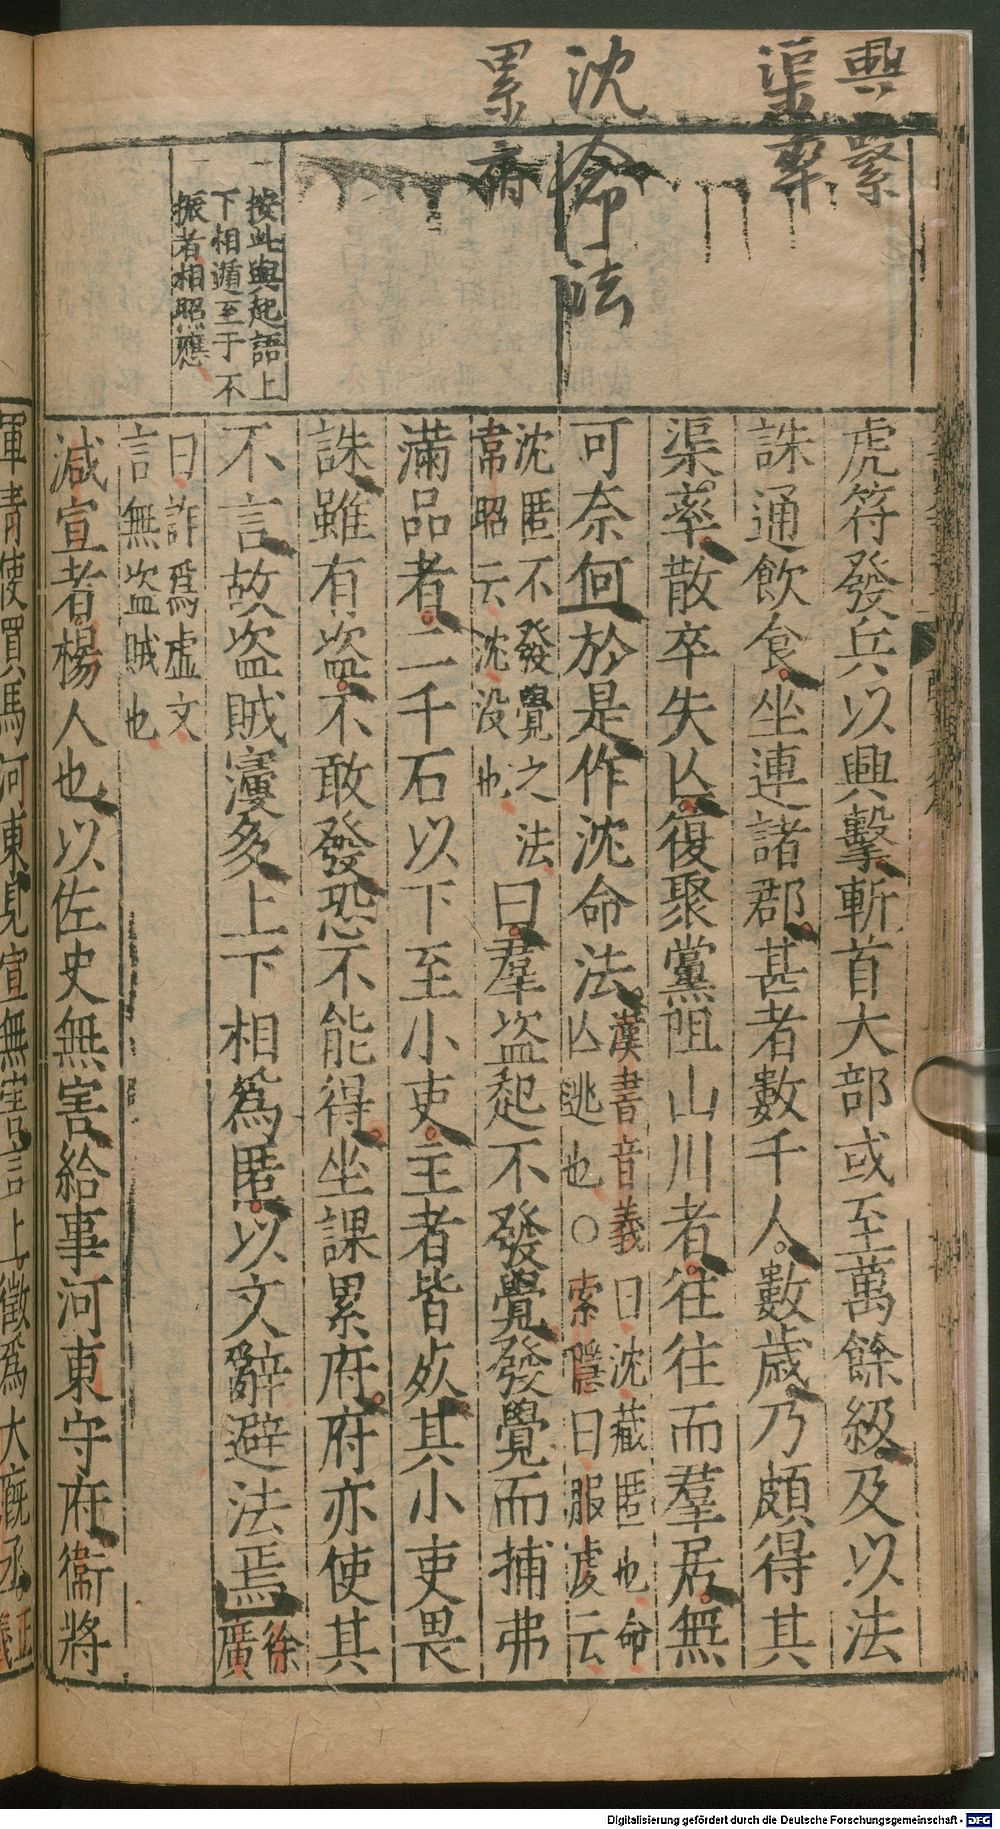 興繋
渠率
沈命法
累府
按此與起語上
下相遁至于不
振者相照應
虎符發兵以興擊斬首大部或至萬餘級及以法
誅通飲食坐連諸郡甚者數千人數歲乃頗得其
渠率散卒失亾復聚黨阻山川者往往而羣居無
可奈何於是作沈命法漢書音義曰沈藏匿也命
亾逃也○索隱曰服虔云
沈匿不發覺之法
韋昭云沈没也
曰羣盗起不發覺發覺而捕弗
滿品者二千石以下至小吏主者皆死其小吏畏
誅雖有盗不敢發恐不能得坐課累府府亦使其
不言故盗賊寖多上下相爲匿以文辭避法焉徐
廣
曰詐爲虚文
言無盗賊也
減宣者楊人也以佐史無害給事河東守府衞將
軍青使買馬河東見宣無害言上徵爲大廐丞正
義
Digitalisierung gefördert durch die Deutsche Forschungsgemeinschaft - DFG